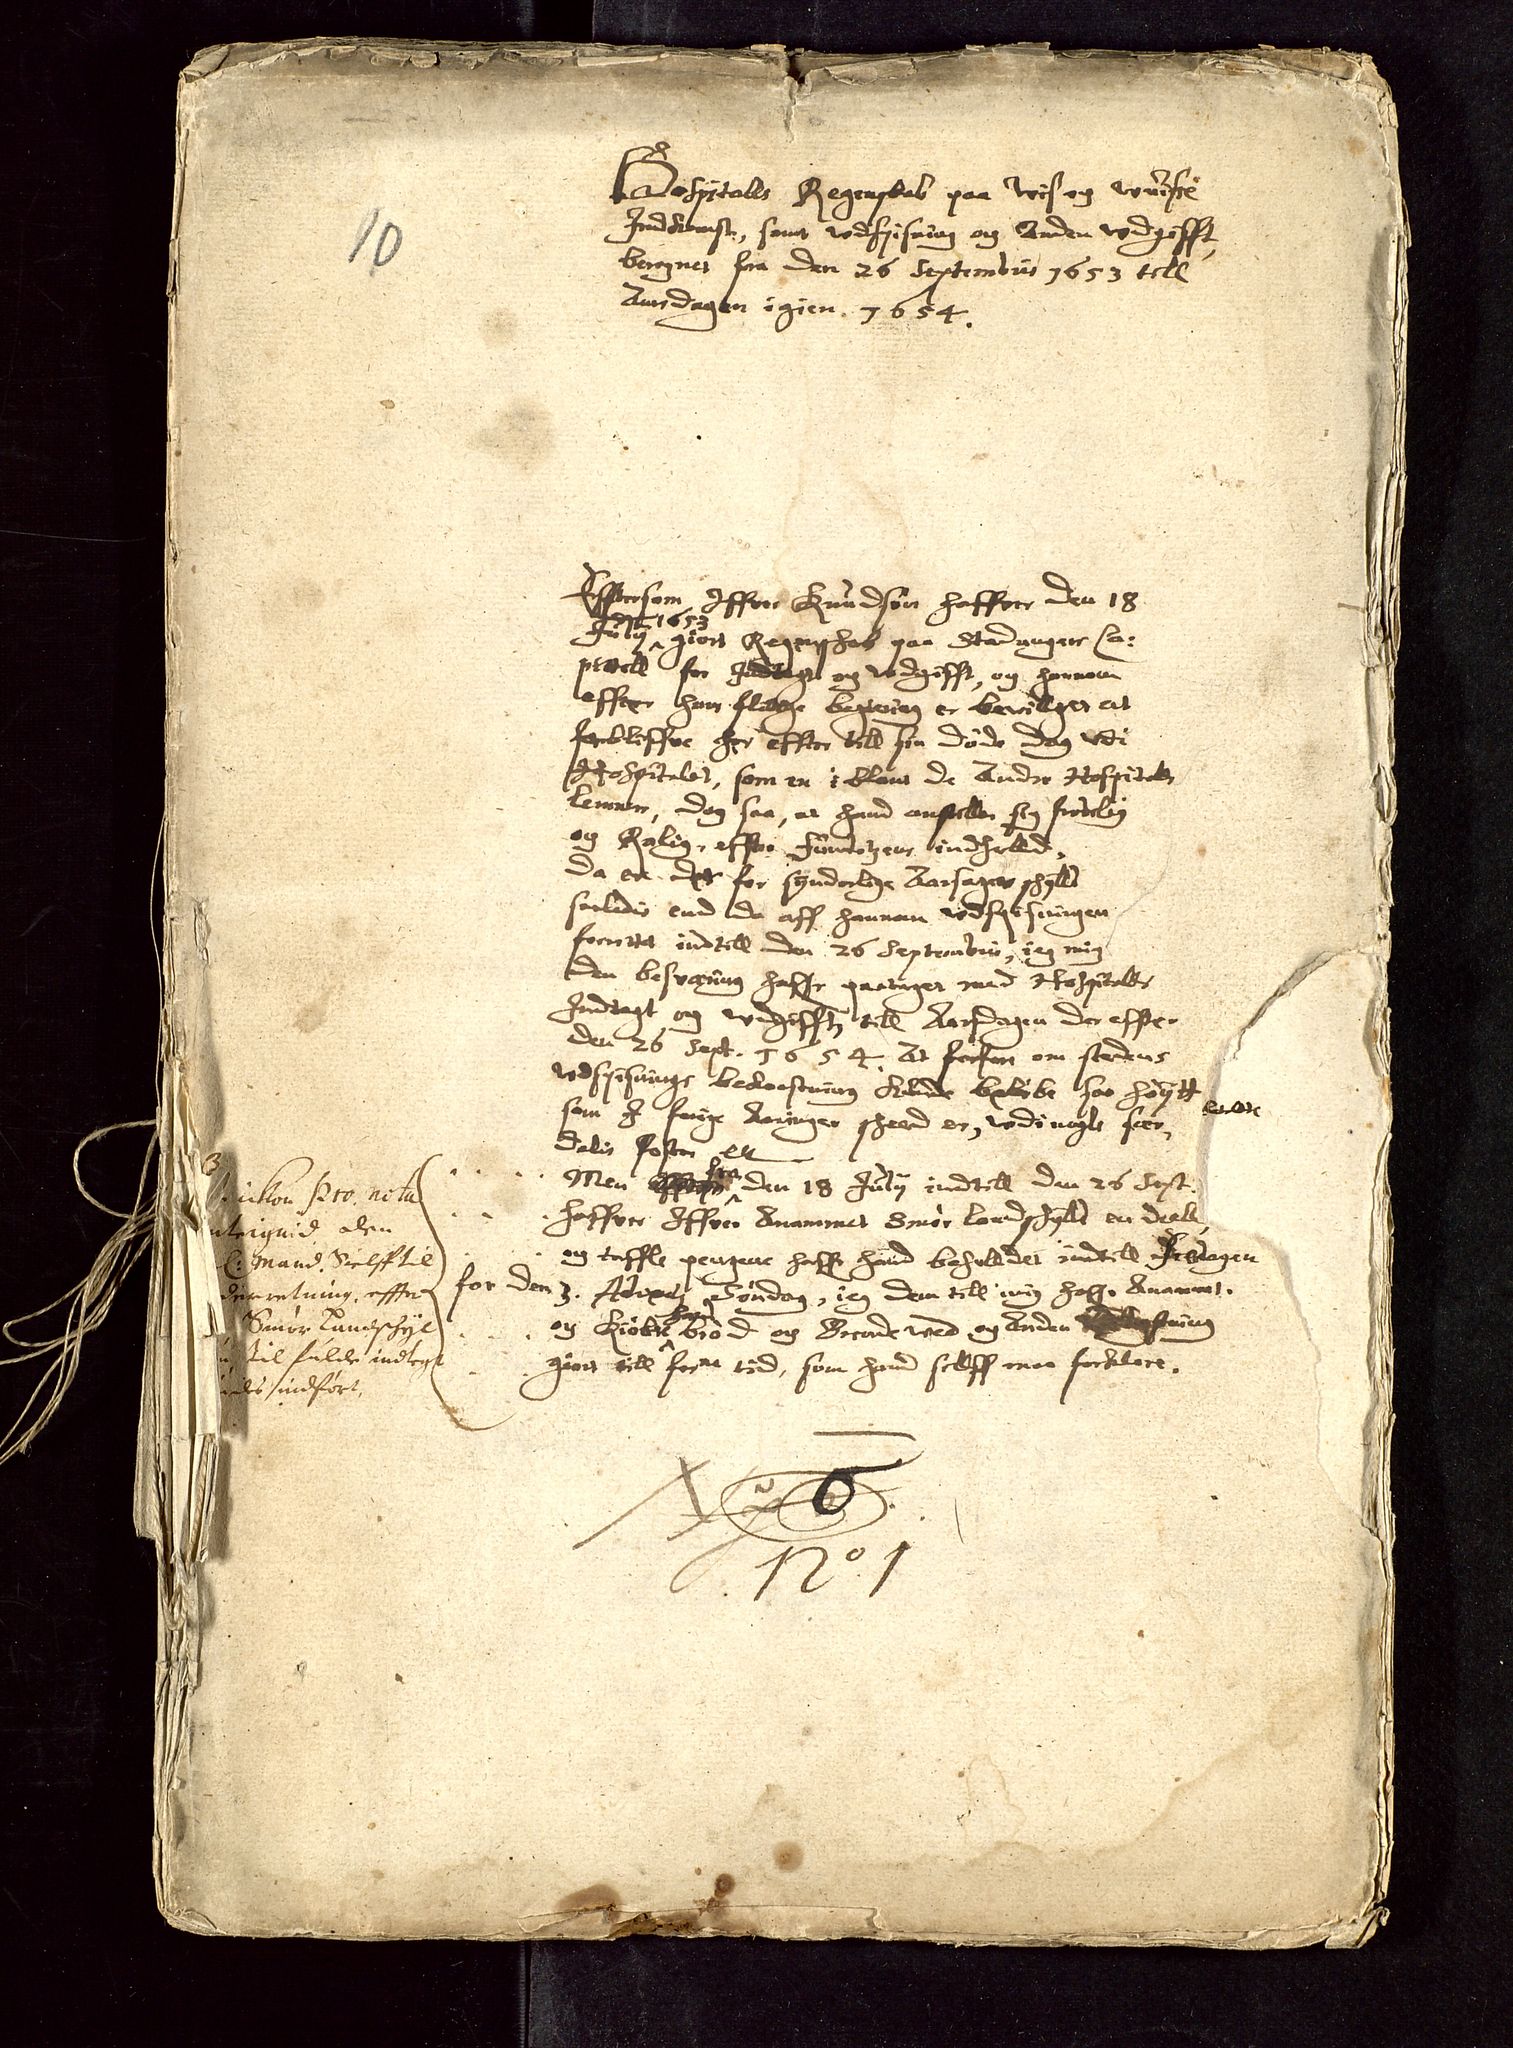 10
Hospitalls Regenskab paa wis og wuisse
Indkomst, samt wdspisning og Anden wdgifft,
beregnet fra den 26 Septembris 1653 till
Aarsdagen igien. 1654.
Effttersom Iffver Knudsøn haffver den 18
July 1653 giort Regenskab paa Stavanger Ca:
pittell for Indtegt og wdgifft, og hannem
effter hans flittige begiering er bevillget at
forbliffve her effter till sin døde dag udi
Hospitalet, som en i blant de Andre Hospitals
lemmer, dog saa, at hand anstiller sig fredelig
og Rolig, effter Funtatzens indhold,
da er det for synderlige Aarsagers skyld
saaledis end da aff hannem wdspisningen
forrettet indtill den 26 Septembris, ieg mig
den besværing haffr paataget med Hospitalets
Indtegt og wdgifft, till Aarsdagen der effter
den 26 Sept. 1654. At forfare om stedens
wdspisnings bekostning kunde beløbe saa høytt
som I forige Aaringer skeed er, wdi nogle sær,
delis Poster etc
Men fra den 18 July indtill den 26 Sept.
haffver Iffver Anammet Smør landskyld en deell,
og taffle pengene haffr hand beholdet indtill fredagen
for den 3. Advent Søndag, ieg dem till mig haffr Anammet.
og Kiøbt brød og Brende wed og Anden
giort till forne tid, som hand sellff maa forklare.
pro. nota
den
Mand. Sielff til
retning. effter
Smør Landskyl
til fulde indtegt
indført.
No. 1